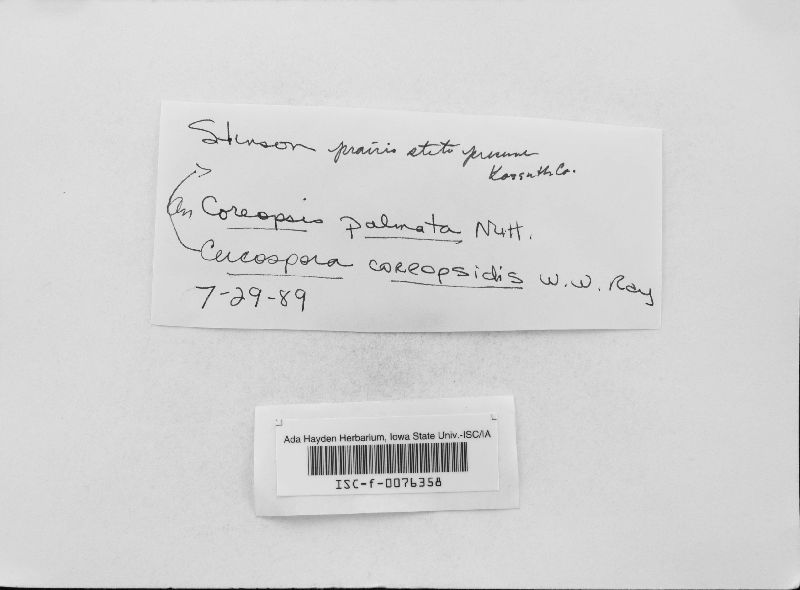 Stinson prairie state preserve
Kossuth Co.
On Coreopsis palmata Nutt.
Cercospora coreopsidis W. W. Ray
7-29-89
Ada Hayden Herbarium, Iowa State Univ.-ISC/IA
ISC-f-0076358